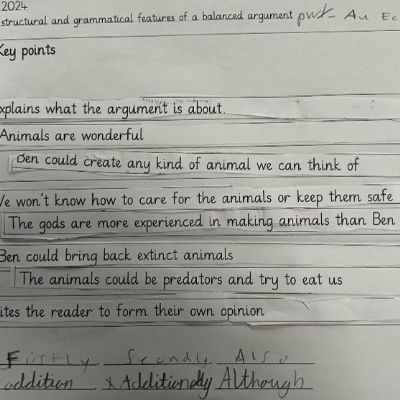 2024
structural and grammatical features of a balanced argument
Key points
xplains what the argument is about.
Animals are wonderful
Ben could create any kind of animal we can think of
We won't know how to care for the animals or keep them safe
The gods are more experienced in making animals than Ben
Ben could bring back extinct animals
The animals could be predators and try to eat us
ites the reader to form their own opinion
Firstly Secondly Also
addition Additionally Although